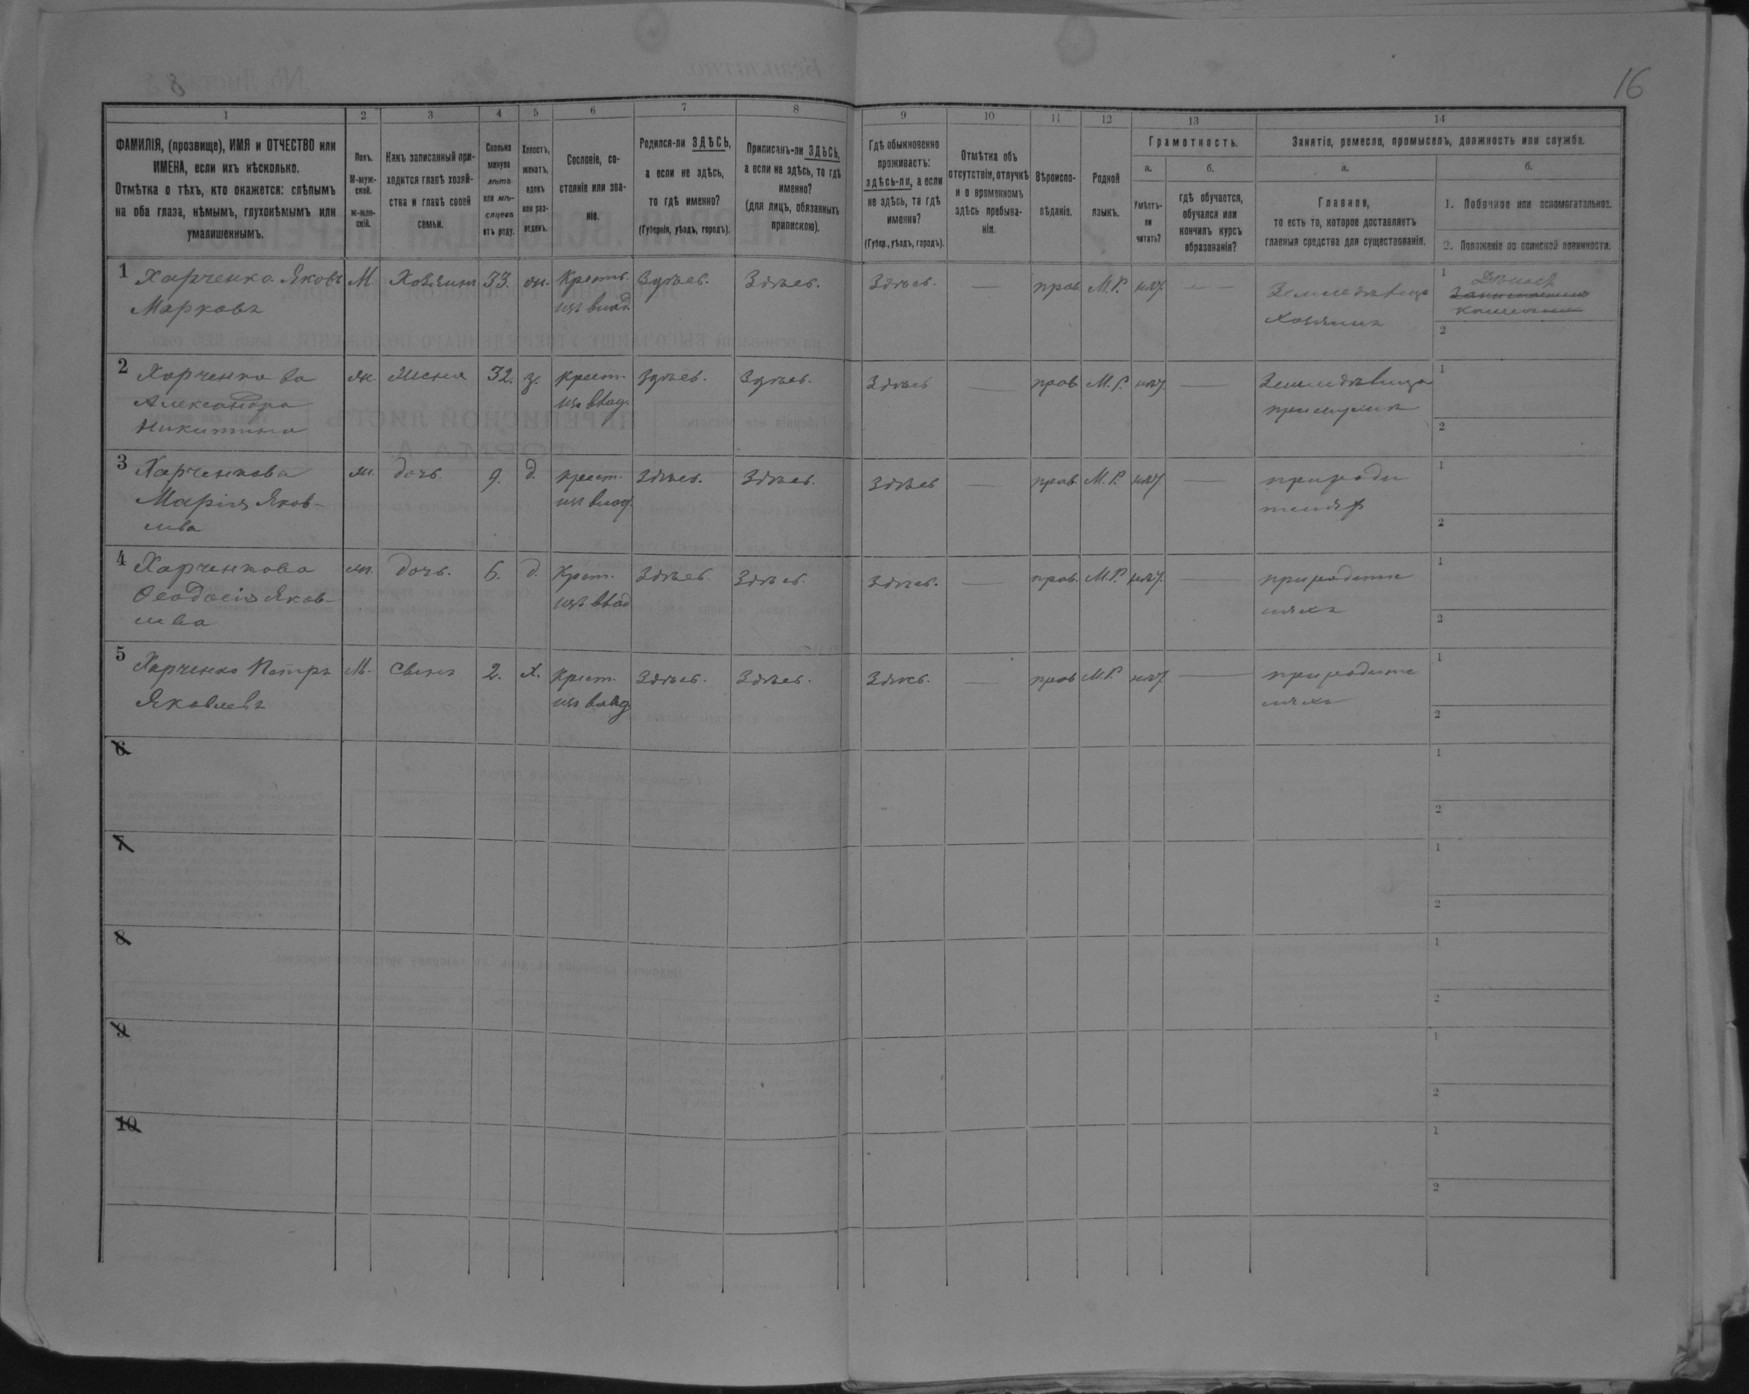 8
16
1
2
3
4
5
6
7
8
9
10
11
12
13
14
ФАМИЛІЯ, (прозвище), ИМЯ и ОТЧЕСТВО или
ИМЕНА, если ихъ нѣсколько.
Отмѣтка о тѣхъ, кто окажется: слѣпымъ
на оба глаза, нѣмымъ, глухонѣмымъ или
умалишеннымъ.
Полъ.
М-муж-
ской.
ж-жен-
скій.
Какъ записанный при-
ходится главѣ хозяй-
ства и главѣ своей
семьи.
Сколько
минуло
лѣтъ
или мѣ-
сяцевъ
отъ роду.
Холостъ,
женатъ,
вдовъ
или раз-
веденъ.
Сословіе, со-
стояніе или зва-
ніе.
Родился-ли ЗДѢСЬ,
а если не здѣсь,
то гдѣ именно?
(Губернія, уѣздъ, городъ).
Приписанъ-ли ЗДѢСЬ,
а если не здѣсь, то гдѣ
именно?
(для лицъ, обязанныхъ
припискою).
Гдѣ обыкновенно
проживаетъ:
здѣсь-ли, а если
не здѣсь, то гдѣ
именно?
(Губер., уѣздъ, городъ).
Отмѣтка объ
отсутствіи, отлучкѣ
и о временномъ
здѣсь пребыва-
ніи.
Вѣроиспо-
вѣданіе.
Родной
языкъ.
Грамотность.
а.
б.
Умѣетъ-
ли
читать?
гдѣ обучается,
обучался или
кончилъ курсъ
образованія?
Занятіе, ремесло, промыселъ, должность или служба.
а.
б.
Главное,
то есть то, которое доставляетъ
главныя средства для существованія.
1. Побочное или вспомогательное.
2. Положеніе по воинской повинности.
1 Харченко Яковъ М Хозяинъ 33. жн. Крестъ. Здѣсь. Здѣсь. Здѣсь. — прав М.Р. нѣт — Земледѣлецъ
Марковъ изъ влад. хозяинъ
2 Харченкова ж. жена 32. з. Крест. Здѣсь. Здѣсь. Здѣсь — прав М.Р. нѣт — Земледѣлецъ
Александра изъ влад. при мужѣ
Никитина
3 Харченкова ж. дочь. 9. д. крест. Здѣсь. Здѣсь. Здѣсь — прав. М.Р. нѣт — при роди
Марія Яков- изъ влад.
лева
4 Харченкова ж. дочь. 6. д. Крест. Здѣсь. Здѣсь. Здѣсь. — прав. М.Р. нѣт — при родите
Ѳеодосія Яков- изъ влад ляхъ
лева
5 Харченко Петръ М. сынъ 2. х. Крест. Здѣсь. Здѣсь. Здѣсь. — прав М.Р. нѣт — при родите
Яковлевъ изъ влад ляхъ
6
7
8
9
10